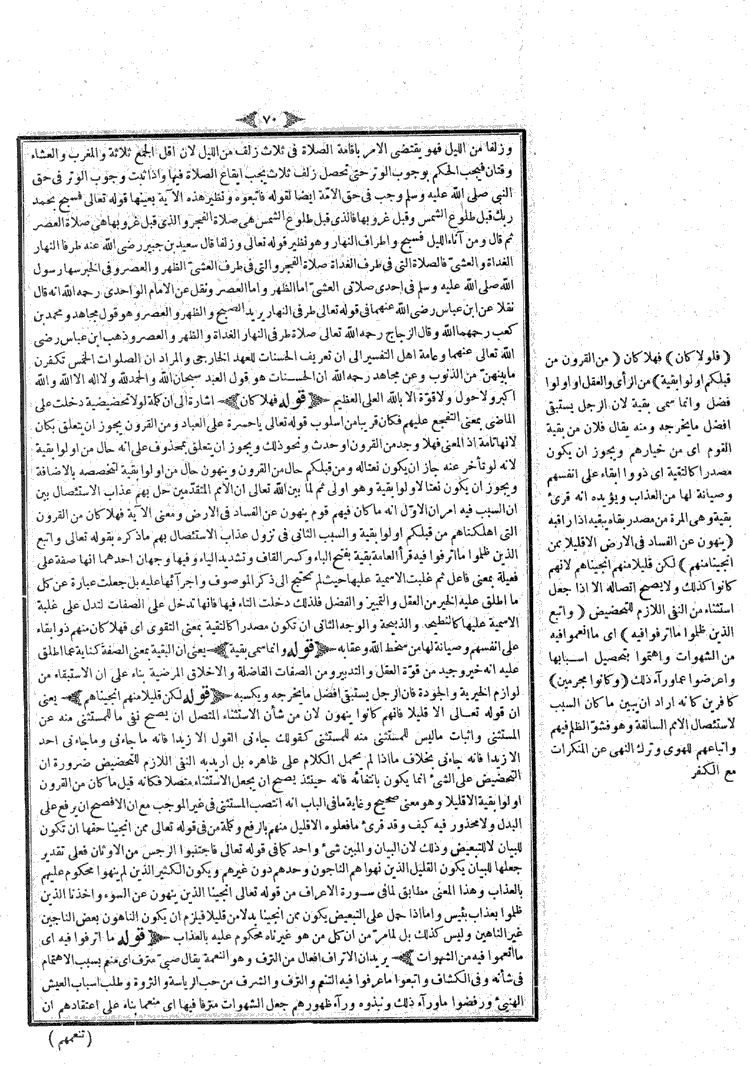 ﴿ ٧٠ ﴾
وزلفا من الليل فهو يقتضى الامر باقامة الصلاة فى ثلاث زلف من الليل لان اقل الجمع ثلاثة والمغرب والعشاء
وقتان فيجب الحكم بوجوب الوتر حتى تحصل زلف ثلاث يجب ايقاع الصلاة فيها واذا ثبت وجوب الوتر فى حق
النبى صلى الله عليه وسلم وجب فى حق الامة ايضا لقوله فاتبعوه ونظير هذه الآية بعينها قوله تعالى فسبح بحمد
ربك قبل طلوع الشمس وقبل غروبها فالذى قبل طلوع الشمس هى صلاة الفجر والذى قبل غروبها هى صلاة العصر
ثم قال ومن آناء الليل فسبح واطراف النهار وهو نظير قوله تعالى وزلفا قال سعيد بن جبير رضى الله عنه طرفا النهار
الغداة والعشىّ فالصلاة التى فى طرف الغداة صلاة الفجر والتى فى طرف العشىّ الظهر والعصر وفى الخبر سها رسول
الله صلى الله عليه وسلم فى احدى صلاتى العشىّ اما الظهر واما العصر ونقل عن الامام الواحدى رحمه الله انه قال
نقلا عن ابن عباس رضى الله عنهما فى قوله تعالى طرفى النهار يريد الصبح والظهر والعصر وهو قول مجاهد ومحمد بن
كعب رحمهما الله وقال الزجاج رحمه الله تعالى صلاة طرفى النهار الغداة والظهر والعصر وذهب ابن عباس رضى
الله تعالى عنهما وعامة اهل التفسير الى ان تعريف الحسنات للعهد الخارجى والمراد ان الصلوات الخمس تكفرن
ما بينهن من الذنوب وعن مجاهد رحمه الله ان الحسنات هو قول العبد سبحان الله والحمد لله ولا اله الا الله والله
اكبر ولا حول ولا قوة الا بالله العلى العظيم ﴿ قوله فهلا كان ﴾ اشارة الى ان كلمة لولا تحضيضية دخلت على
الماضى بمعنى التفجع عليهم فكان قريبا من اسلوب قوله تعالى يا حسرة على العباد ومن القرون يجوز ان يتعلق بكان
لانها تامة اذ المعنى فهلا وجد من القرون او حدث ونحو ذلك ويجوز ان يتعلق بمحذوف على انه حال من اولوا بقية
لانه لو تأخر عنه جاز ان يكون نعتا له ومن قبلكم حال من القرون وينهون حال من اولوا بقية لتخصصه بالاضافة
ويجوز ان يكون نعتا لاولوا بقية وهو اولى ثم لما بين الله تعالى ان الامم المتقدمين حل بهم عذاب الاستئصال بين
ان السبب فيه امران الاول انه ما كان فيهم قوم ينهون عن الفساد فى الارض ومعنى الآية فهلا كان من القرون
التى اهلكناهم من قبلكم اولوا بقية والسبب الثانى فى نزول عذاب الاستئصال بهم ما ذكره بقوله تعالى واتبع
الذين ظلموا ما اترفوا فيه قرأ العامة بقية بفتح الباء وكسر القاف وتشديد الياء وفيها وجهان احدهما انها صفة على
فعيلة بمعنى فاعل ثم غلبت الاسمية عليها حيث لم تحتج الى ذكر الموصوف واجرآئها عليه بل جعلت عبارة عن كل
ما اطلق عليه الخير من العقل والتمييز والفضل فلذلك دخلت التاء فيها فانها تدخل على الصفات لتدل على غلبة
الاسمية عليها كالنطيحة والذبيحة والوجه الثانى ان تكون مصدرا كالتقية بمعنى التقوى اى فهلا كان منهم ذو ابقاء
على انفسهم وصيانة لها من سخط الله وعقابه ﴿ قوله وانما سمى بقية ﴾ يعنى ان البقية بمعنى الصفة كناية عما اطلق
عليه انه خير وجيد من قوة العقل والتدبير ومن الصفات الفاضلة والاخلاق المرضية بناء على ان الاستبقاء من
لوازم الخيرية والجودة فان الرجل يستبقى افضل ما يخرجه ويكسبه ﴿ قوله لكن قليلا منهم انجيناهم ﴾ يعنى
ان قوله تعالى الا قليلا فانهم كانوا ينهون لان من شأن الاستثناء المتصل ان يصح نفى ما للمستثنى منه عن
المستثنى واثبات ما ليس للمستثنى منه للمستثنى كقولك جاءنى القول الا زيدا فانه ما جاءنى وما جاءنى احد
الا زيدا فانه جاءنى بخلاف ما اذا لم يحمل الكلام على ظاهره بل اريد به النفى اللازم للتحضيض ضرورة ان
التحضيض على الشئ انما يكون بانتفائه فانه حينئذ يصح ان يجعل الاستثناء متصلا فكانه قيل ما كان من القرون
اولوا بقية الا قليلا وهو معنى صحيح وغاية ما فى الباب انه انتصب المستثنى فى غير الموجب مع ان الافصح ان يرفع على
البدل ولا محذور فيه كيف وقد قرئ ما فعلوه الا قليل منهم بالرفع وكلمة من فى قوله تعالى ممن انجينا حقها ان تكون
للبيان لا للتبعيض وذلك لان البيان والمبين شئ واحد كما فى قوله تعالى فاجتنبوا الرجس من الاوثان فعلى تقدير
جعلها للبيان يكون القليل الذين نهوا هم الناجون وحدهم دون غيرهم ويكون الكثير الذين لم ينهوا محكوم عليهم
بالعذاب وهذا المعنى مطابق لما فى سورة الاعراف من قوله تعالى انجينا الذين ينهون عن السوء واخذنا الذين
ظلموا بعذاب بئيس واما اذا حمل على التبعيض يكون ممن انجينا بدلا من قليلا فيلزم ان يكون الناهون بعض الناجين
غير الناهين وليس كذلك بل لما مرّ من ان كل من هو غير ناه محكوم عليه بالعذاب ﴿ قوله ما اترفوا فيه اى
ما انعموا فيه من الشهوات ﴾ يريد ان الاتراف افعال من الترف وهو النعمة يقال صبىّ مترف اى منعم بسبب الاهتمام
فى شأنه وفى الكشاف واتبعوا ما عرفوا فيه التنعم والترف والشرف من حب الرياسة والثروة وطلب اسباب العيش
الهنئ ورفضوا ما ورآء ذلك ونبذوه ورآء ظهورهم جعل الشهوات مترفا فيها اى منعما بناء على اعتقادهم ان
( تنعمهم )
( فلولا كان ) فهلا كان ( من القرون من
قبلكم اولوا بقية ) من الرأى والعقل او اولوا
فضل وانما سمى بقية لان الرجل يستبقى
افضل ما يخرجه ومنه يقال فلان من بقية
القوم اى من خيارهم ويجوز ان يكون
مصدرا كالتقية اى ذووا ابقاء على انفسهم
وصيانة لها من العذاب ويؤيده انه قرئ
بقية وهى المرة من مصدر بقاه يبقيه اذا راقبه
( ينهون عن الفساد فى الارض الا قليلا ممن
انجينا منهم ) لكن قليلا منهم انجيناهم لانهم
كانوا كذلك ولا يصح اتصاله الا اذا جعل
استثناء من النفى اللازم للتحضيض ( واتبع
الذين ظلموا ما اترفوا فيه ) اى ما انعموا فيه
من الشهوات واهتموا بتحصيل اسبابها
واعرضوا عما ورآء ذلك ( وكانوا مجرمين )
كافرين كانه اراد ان يبين ما كان السبب
لاستئصال الامم السالفة وهو فشوّ الظلم فيهم
واتباعهم للهوى وترك النهى عن المنكرات
مع الكفر